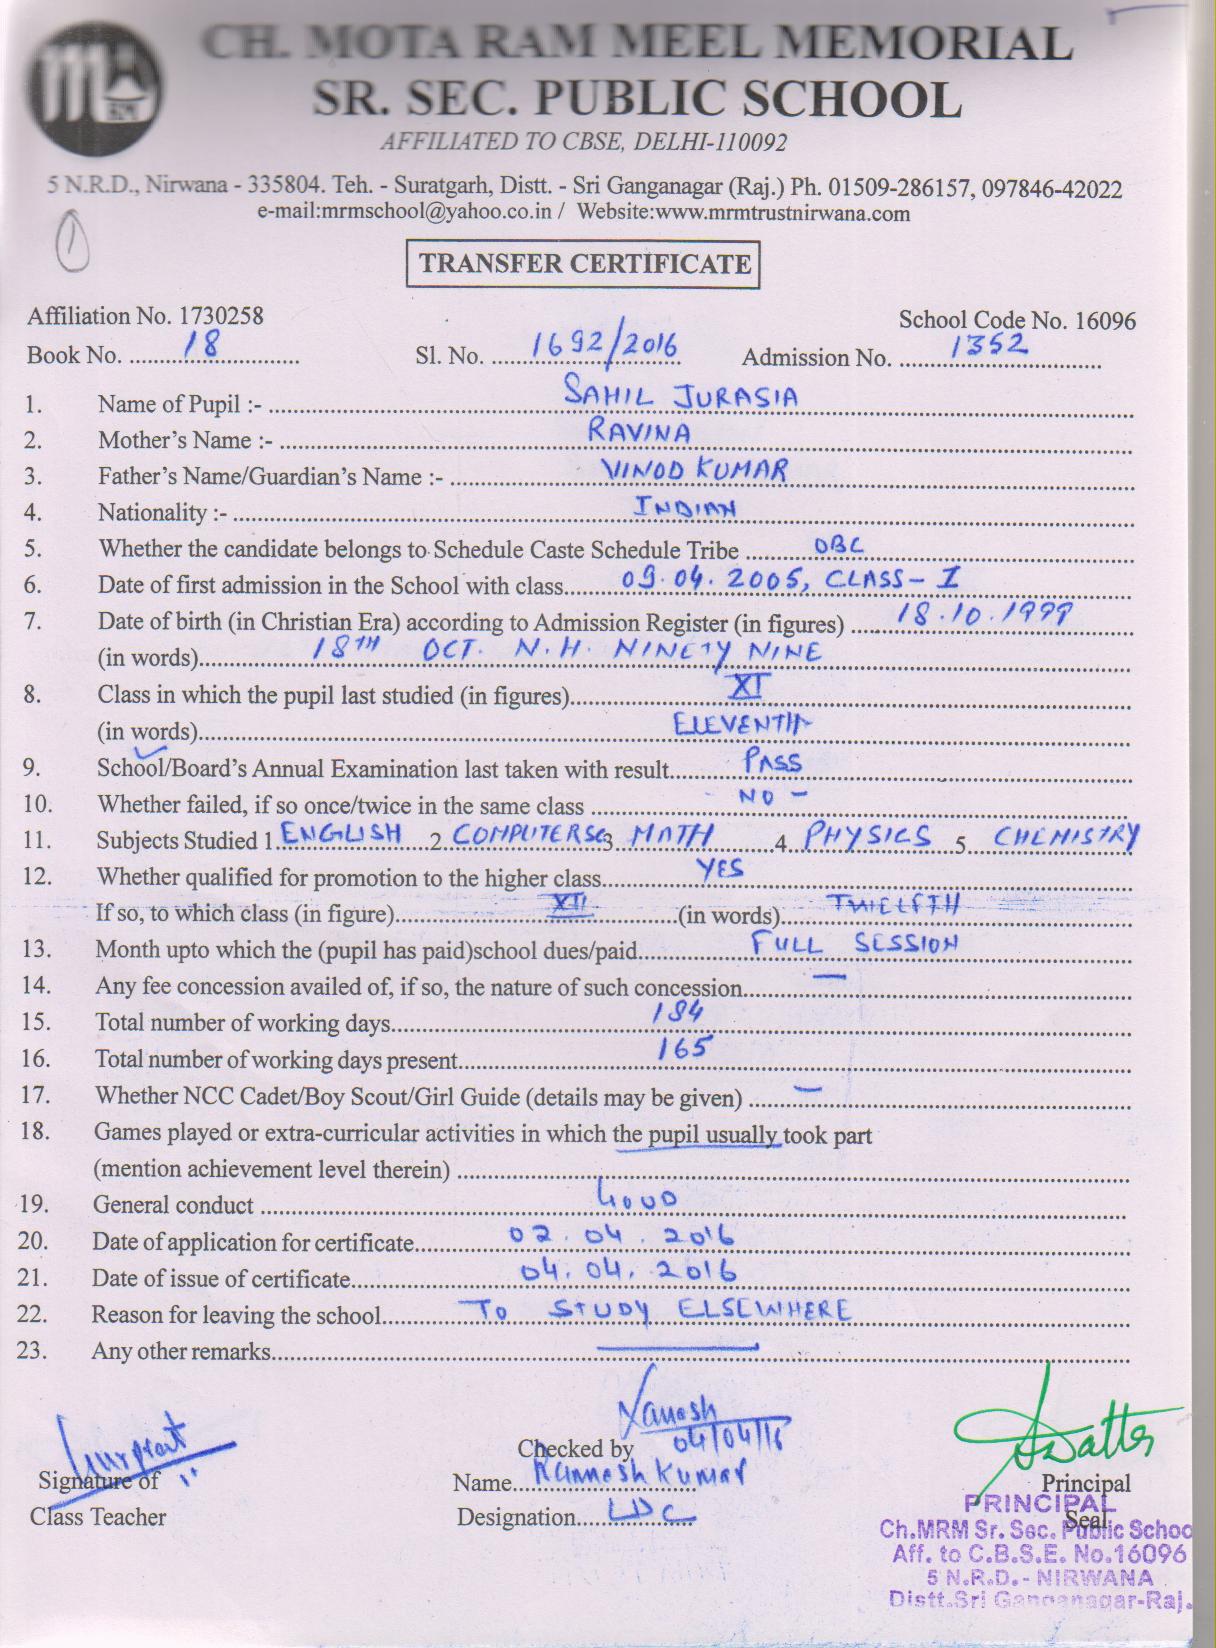 CH. MOTA RAM MEEL MEMORIAL
SR. SEC. PUBLIC SCHOOL
AFFILIATED TO CBSE, DELHI-110092
5 N.R.D., Nirwana - 335804. Teh. - Suratgarh, Distt. - Sri Ganganagar (Raj.) Ph. 01509-286157, 097846-42022
e-mail:mrmschool@yahoo.co.in / Website:www.mrmtrustnirwana.com
1
TRANSFER CERTIFICATE
Affiliation No. 1730258 School Code No. 16096
Book No. 18 Sl. No. 1692/2016 Admission No. 1352
1. Name of Pupil :- SAHIL JURASIA
2. Mother's Name :- RAVINA
3. Father's Name/Guardian's Name :- VINOD KUMAR
4. Nationality :- INDIAN
5. Whether the candidate belongs to Schedule Caste Schedule Tribe OBC
6. Date of first admission in the School with class 09.04.2005, CLASS-I
7. Date of birth (in Christian Era) according to Admission Register (in figures) 18.10.1999
(in words) 18TH OCT. N.H. NINETY NINE
8. Class in which the pupil last studied (in figures) XI
(in words) ELEVENTH
9. School/Board's Annual Examination last taken with result PASS
10. Whether failed, if so once/twice in the same class - NO -
11. Subjects Studied 1. ENGLISH 2 COMPUTERSC 3 MATH 4 PHYSICS 5 CHEMISTRY
12. Whether qualified for promotion to the higher class YES
If so, to which class (in figure) XII (in words) TWELFTH
13. Month upto which the (pupil has paid)school dues/paid FULL SESSION
14. Any fee concession availed of, if so, the nature of such concession —
15. Total number of working days 184
16. Total number of working days present 165
17. Whether NCC Cadet/Boy Scout/Girl Guide (details may be given) —
18. Games played or extra-curricular activities in which the pupil usually took part
(mention achievement level therein)
19. General conduct GOOD
20. Date of application for certificate 02.04.2016
21. Date of issue of certificate 04.04.2016
22. Reason for leaving the school TO STUDY ELSEWHERE
23. Any other remarks —
04/04/16
Checked by
Signature of Name Kumar Principal
Class Teacher Designation LDC Seal
PRINCIPAL
Ch.MRM Sr. Sec. Public Schoo
Aff. to C.B.S.E. No.16096
5 N.R.D.- NIRWANA
Distt.Sri Ganganagar-Raj.